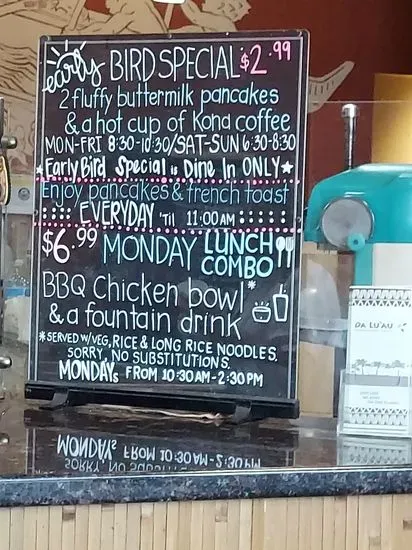 early BIRD SPECIAL $2.99
2 fluffy buttermilk pancakes
& a hot cup of Kona coffee
MON-FRI 8:30-10:30/SAT-SUN 6:30-8:30
★Early Bird Special is Dine In ONLY★
Enjoy pancakes & french toast
EVERYDAY 'Til 11:00AM
$6.99 MONDAY LUNCH COMBO
BBQ Chicken bowl*
& a fountain drink
*SERVED W/VEG, RICE & LONG RICE NOODLES.
SORRY, NO SUBSTITUTIONS.
MONDAYs FROM 10:30AM-2:30PM
DA LU'AU